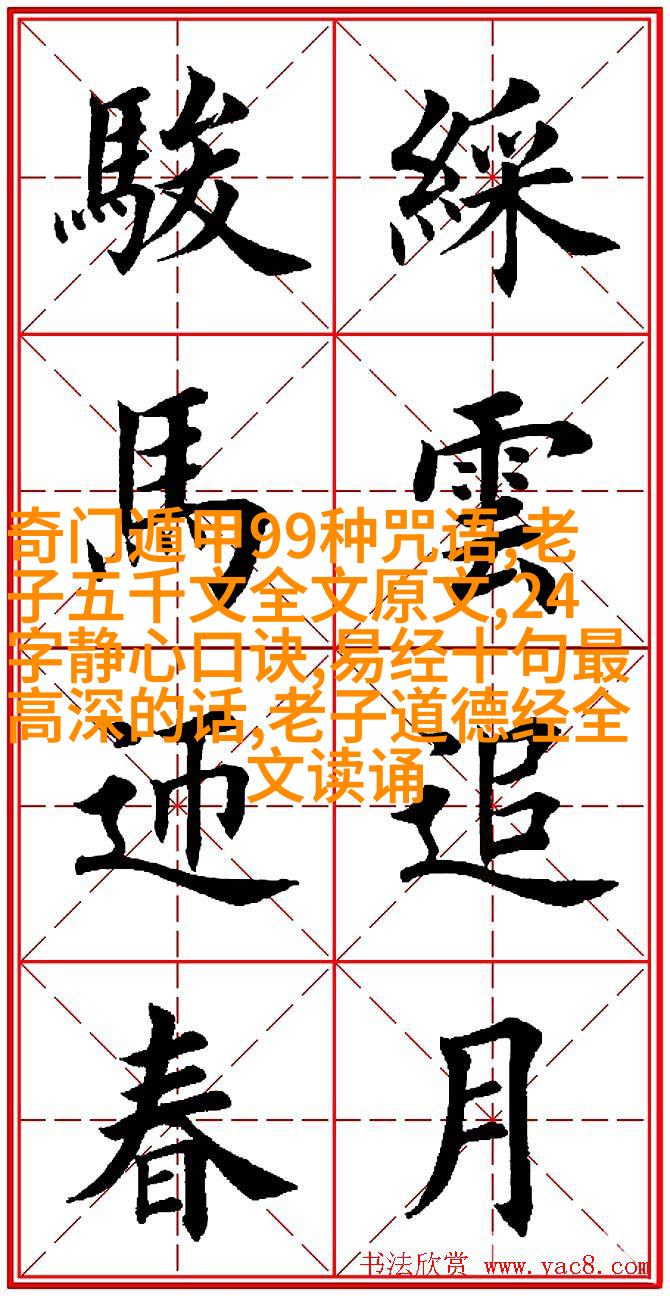 綵雲追月
駿馬迎春
奇门遁甲99种咒语,老
子五千文全文原文,24
字静心口诀,易经十句最
高深的话,老子道德经全
文读诵
书法欣赏 www.yac8.com